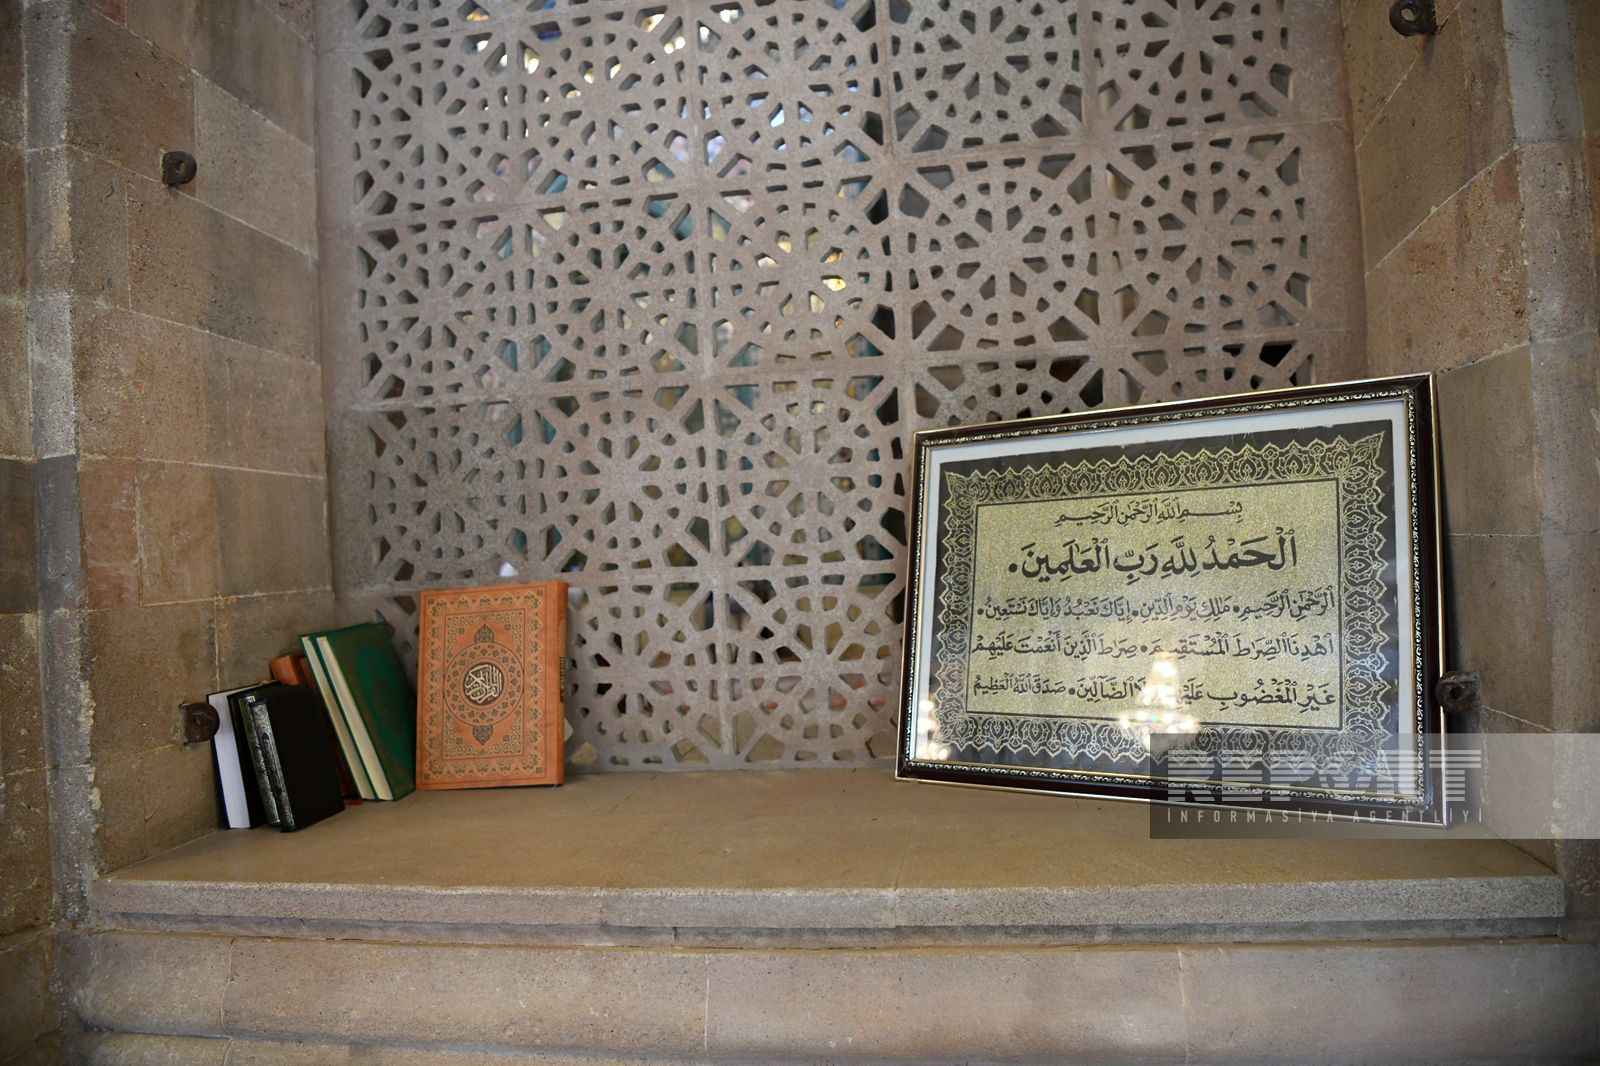 بِسْمِ ٱللَّهِ ٱلرَّحْمَٰنِ ٱلرَّحِيمِ
ٱلْحَمْدُ لِلَّهِ رَبِّ ٱلْعَٰلَمِينَ •
ٱلرَّحْمَٰنِ ٱلرَّحِيمِ • مَٰلِكِ يَوْمِ ٱلدِّينِ • إِيَّاكَ نَعْبُدُ وَإِيَّاكَ نَسْتَعِينُ •
ٱهْدِنَا ٱلصِّرَٰطَ ٱلْمُسْتَقِيمَ • صِرَٰطَ ٱلَّذِينَ أَنْعَمْتَ عَلَيْهِمْ
غَيْرِ ٱلْمَغْضُوبِ عَلَيْهِمْ وَلَا ٱلضَّآلِّينَ • صَدَقَ ٱللَّهُ ٱلْعَظِيمُ
القرآن الكريم
REPORT
INFORMASİYA AGENTLİYİ